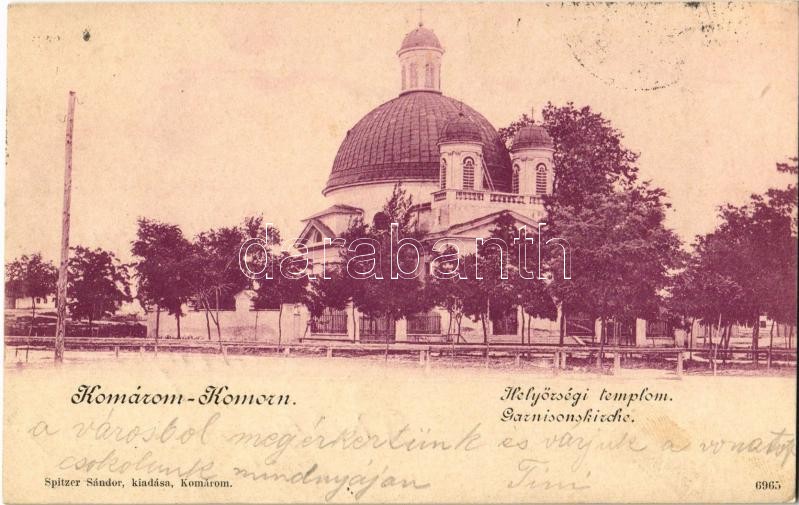 darabanth
Komárom-Komorn.
Helyőrségi templom.
Garnisonskirche.
a városból megérkertünk és várjuk a vonatot
csokolunk mindnyájan Tini
Spitzer Sándor, kiadása, Komárom.
6965